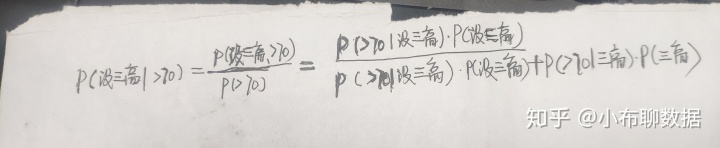 P(没三高|>70) = P(没三高,>70) / P(>70) = P(>70|没三高)·P(没三高) / P(>70|没三高)·P(没三高)+P(>70|三高)·P(三高)
知乎 @小布聊数据